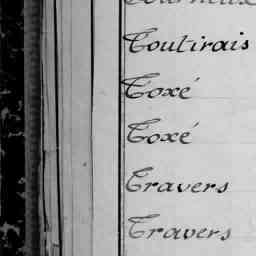 Toutirais
Toxé
Toxé
Travers
Travers